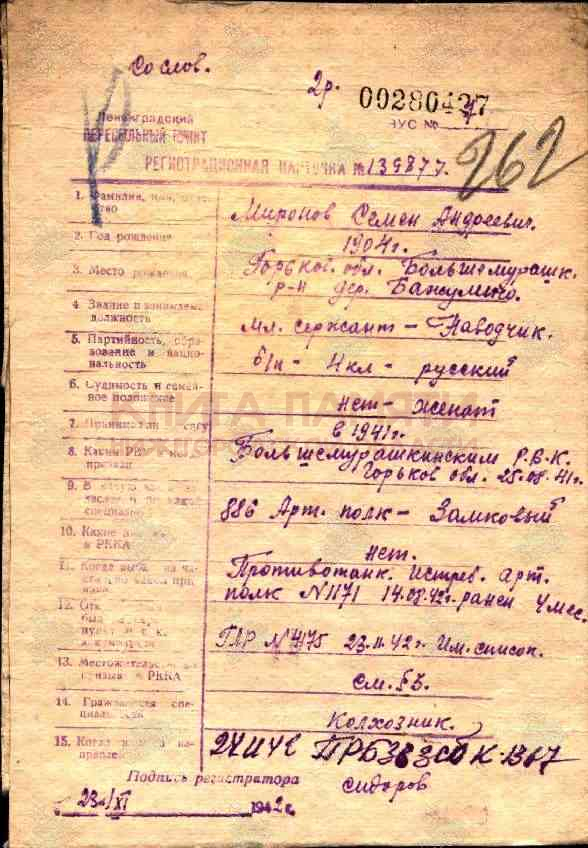 Со слов.
2р.
00280427
ВУС №
Ленинградский
ПЕРЕСЫЛЬНЫЙ ПУНКТ
РЕГИСТРАЦИОННАЯ КАРТОЧКА № 139877.
262
1. Фамилия, имя,
Миронов Семен Андреевич.
2. Год рождения
1904г.
3. Место рождения
Горьков. обл. Большемурашк.
р-н дер. Бакулино.
4. Звание и занимаем.
должность
мл. сержант – Наводчик.
5. Партийность, обра-
зование и нацио-
нальность
б/п – 4кл – русский
6. Судимость и семей-
ное положение
нет – женат
7.
в 1941г.
8. Каким РВК
призван
Большемурашкинским Р.В.К.
Горьков обл. 25.08.41г.
9. В
886 Арт. полк – Замковый
10. Какие
в РККА
нет.
11. Когда
Противотанк. Истреб. Арт.
полк N 1171 14.08.42г. ранен 4 мес.
12.
ГЛР N 4175 23.11.42г. Им. список.
13. Местожительство
РККА
см. §3.
14. Гражданская спе-
циальность
Колхозник.
15. Когда
на-
правлен
Подпись регистратора
Сидоров
23/XI 1942г.
КНИГА ПАМЯТИ